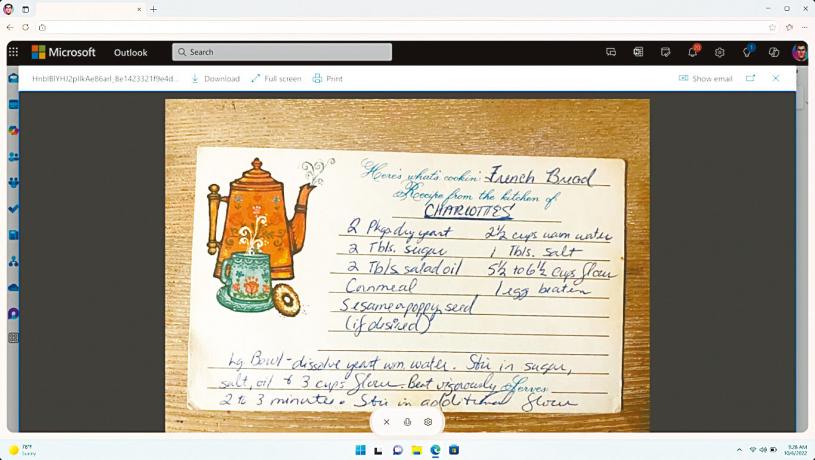 Microsoft Outlook Search 20 1
HnbIBIYHJ2pIlkAe86arl_8e1423321f9e4d... Download Full screen Print Show email
Here's what's cookin' French Bread
Recipe from the kitchen of
CHARLOTTES
2 Pkgs dry yeast 2½ cups warm water
2 Tbls. sugar 1 Tbls. salt
2 Tbls salad oil 5½ to 6½ cups flour
Cornmeal 1 egg beaten
Sesame or poppy seed
(if desired)
Lg. Bowl - dissolve yeast wm. water. Stir in sugar,
salt, oil & 3 cups flour. Beat vigorously Serves
2 to 3 minutes. Stir in additional flour
78°F
Sunny
9:28 AM
10/6/2022